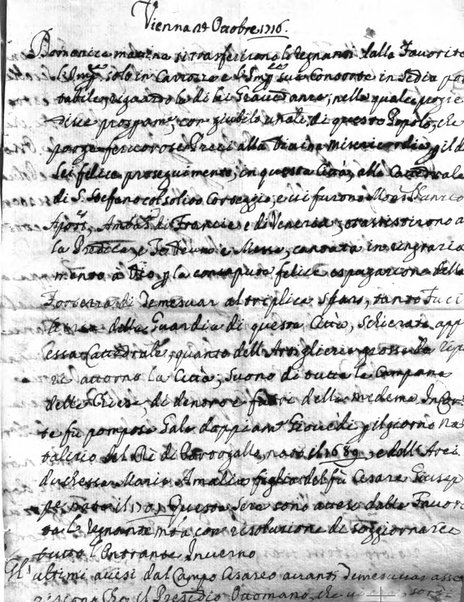 Vienna 24 Ottobre 1716
Domenica matina si trasferirono li Regnanti dalla Favorita
le Imp. solo in Carrozza e le Imp. sua consorte in Sedia por
tabile riguardo della di lei Gravidanza, nella quale
con giubilo univ. di questo Popolo, che
porge fervorose Preci alla Divina misericordia, p il di
Lei felice proseguimento, in questa Città, alla Cattedrale
di S. Stefano col solito Corteggio, e vi furono Mons. Nunzio
Apos. Amba. di Francia e di Venezia, assistirono a
la Predica, e Te Deum e Messa, cantata in ringrazia
mento à Dio, p la conseguita felice espugnazione della
Fortezza di Temesuar al triplice sparo, tanto Fuci
leria della Guardia di questa Città, schierata app.
essa Cattedrale, quanto dell'Artiglieria grossa
attorno la Città, Suono di tutte le Campane
delle Chiese, di dentro e fuori della medema
te fù pomposo Gala doppiam. Giovedi p il giorno Na
talizio del Rè di Portogallo nato il 1689, e dell'Arci
duchessa Maria Amalia figlia del fù Cesare Giusep
pe nata il 1701. Questa Sera sono attesi dalla Favorita
li Regnanti con risoluzione di soggiornare
tutto l'Entrante Inverno
Gl'ultimi avisi dal Campo Cesareo avanti Temesuar
che il Presidio Ottomano, che